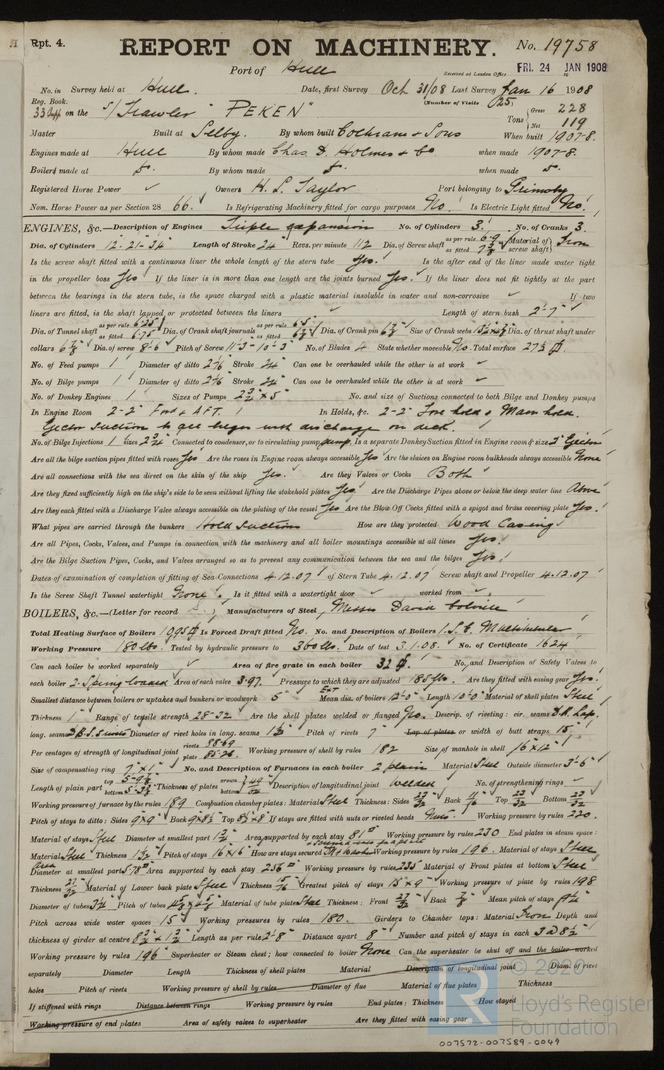 Rpt. 4.
REPORT ON MACHINERY.
No. 19758
Port of Hull
Received at London Office
FRI. 24 JAN 1908
No. in Survey held at Hull. Date, first Survey Oct 31/08 Last Survey Jan 16 1908
Reg. Book. (Number of Visits 25.
33 Supp on the S/ Trawler "PEKEN" Tons Gross 228 Net 119
Master Built at Selby. By whom built Cochrane & Sons When built 1907-8.
Engines made at Hull By whom made Chas. D. Holmes & Co when made 1907-8.
Boilers made at Do. By whom made Do. when made Do.
Registered Horse Power Owners H. L. Taylor Port belonging to Grimsby
Nom. Horse Power as per Section 28 66. Is Refrigerating Machinery fitted for cargo purposes No. Is Electric Light fitted No.
ENGINES, &c.—Description of Engines Triple expansion No. of Cylinders 3. No. of Cranks 3.
Dia. of Cylinders 12-21-34 Length of Stroke 24" Revs. per minute 112 Dia. of Screw shaft as per rule as fitted Material of screw shaft Iron
Is the screw shaft fitted with a continuous liner the whole length of the stern tube Yes. Is the after end of the liner made water tight
in the propeller boss Yes. If the liner is in more than one length are the joints burned Yes. If the liner does not fit tightly at the part
between the bearings in the stern tube, is the space charged with a plastic material insoluble in water and non-corrosive If two
liners are fitted, is the shaft lapped or protected between the liners Length of stern bush 2'-7"
Dia. of Tunnel shaft as per rule 6.25 as fitted 6.75 Dia. of Crank shaft journals as per rule 6.5 as fitted Dia. of Crank pin Size of Crank webs Dia. of thrust shaft under
collars Dia. of screw 8'-6" Pitch of Screw No. of Blades 4 State whether moveable No. Total surface
No. of Feed pumps 1 Diameter of ditto Stroke 24" Can one be overhauled while the other is at work
No. of Bilge pumps 1 Diameter of ditto Stroke 24" Can one be overhauled while the other is at work
No. of Donkey Engines 1 Sizes of Pumps No. and size of Suctions connected to both Bilge and Donkey pumps
In Engine Room 2-2" Ford & AFT. In Holds, &c. 2-2" Fore hold & Main hold.
Ejector suction to all bilges with discharge on deck.
No. of Bilge Injections 1 sizes Connected to condenser, or to circulating pump pump. Is a separate Donkey Suction fitted in Engine room & size 2" Ejector
Are all the bilge suction pipes fitted with roses Yes Are the roses in Engine room always accessible Yes Are the sluices on Engine room bulkheads always accessible None
Are all connections with the sea direct on the skin of the ship Yes. Are they Valves or Cocks Both
Are they fixed sufficiently high on the ship's side to be seen without lifting the stokehold plates Yes. Are the Discharge Pipes above or below the deep water line Above
Are they each fitted with a Discharge Valve always accessible on the plating of the vessel Yes Are the Blow Off Cocks fitted with a spigot and brass covering plate Yes.
What pipes are carried through the bunkers Hold Suctions How are they protected Wood Casing
Are all Pipes, Cocks, Valves, and Pumps in connection with the machinery and all boiler mountings accessible at all times Yes.
Are the Bilge Suction Pipes, Cocks, and Valves arranged so as to prevent any communication between the sea and the bilges Yes.
Dates of examination of completion of fitting of Sea Connections 4.12.07 of Stern Tube 4.12.07 Screw shaft and Propeller 4.12.07
Is the Screw Shaft Tunnel watertight None. Is it fitted with a watertight door worked from
BOILERS, &c.—(Letter for record ) Manufacturers of Steel Messrs David Colville
Total Heating Surface of Boilers 1095 Is Forced Draft fitted No. No. and Description of Boilers 1. S. E. Multitubular
Working Pressure 180 lbs. Tested by hydraulic pressure to 360 lbs. Date of test 3.1.08. No. of Certificate 1624
Can each boiler be worked separately Area of fire grate in each boiler 32 No. and Description of Safety Valves to
each boiler 2. Spring loaded Area of each valve 3.97. Pressure to which they are adjusted 185 lbs. Are they fitted with easing gear Yes.
Smallest distance between boilers or uptakes and bunkers or woodwork 5" Mean Ext dia. of boilers 12'-0" Length 10'-0" Material of shell plates Steel
Thickness 1" Range of tensile strength 28-32 Are the shell plates welded or flanged No. Descrip. of riveting: cir. seams D.R. Lap.
long. seams Diameter of rivet holes in long. seams Pitch of rivets 7" Lap of plates or width of butt straps 15"
Per centages of strength of longitudinal joint rivets 88.69 plate Working pressure of shell by rules 182 Size of manhole in shell 16" x 12"
Size of compensating ring 7" x 1" No. and Description of Furnaces in each boiler 2 plain Material Steel Outside diameter 3'-6"
Length of plain part top bottom Thickness of plates crown bottom Description of longitudinal joint welded No. of strengthening rings
Working pressure of furnace by the rules 189 Combustion chamber plates: Material Steel Thickness: Sides Back Top Bottom
Pitch of stays to ditto: Sides 9" x 9" Back Top If stays are fitted with nuts or riveted heads Nuts. Working pressure by rules 220.
Material of stays Steel Diameter at smallest part Area supported by each stay 81" Working pressure by rules 230 End plates in steam space:
Material Steel Thickness Pitch of stays 16" x 16" How are stays secured Working pressure by rules 196. Material of stays Steel
Area Diameter at smallest part Area supported by each stay 256" Working pressure by rules 235 Material of Front plates at bottom Steel
Thickness Material of Lower back plate Steel Thickness Greatest pitch of stays 15" x 9" Working pressure of plate by rules 198
Diameter of tubes Pitch of tubes Material of tube plates Steel Thickness: Front Back Mean pitch of stays
Pitch across wide water spaces 15" Working pressures by rules 180. Girders to Chamber tops: Material Iron Depth and
thickness of girder at centre Length as per rule 2'-8" Distance apart 8" Number and pitch of stays in each
Working pressure by rules 196 Superheater or Steam chest; how connected to boiler None Can the superheater be shut off and the boiler worked
separately Diameter Length Thickness of shell plates Material Description of longitudinal joint Diam. of rivet
holes Pitch of rivets Working pressure of shell by rules Diameter of flue Material of flue plates Thickness
If stiffened with rings Distance between rings Working pressure by rules End plates: Thickness How stayed
Working pressure of end plates Area of safety valves to superheater Are they fitted with easing gear
© 2020
Lloyd's Register
Foundation
007572-007589-0049